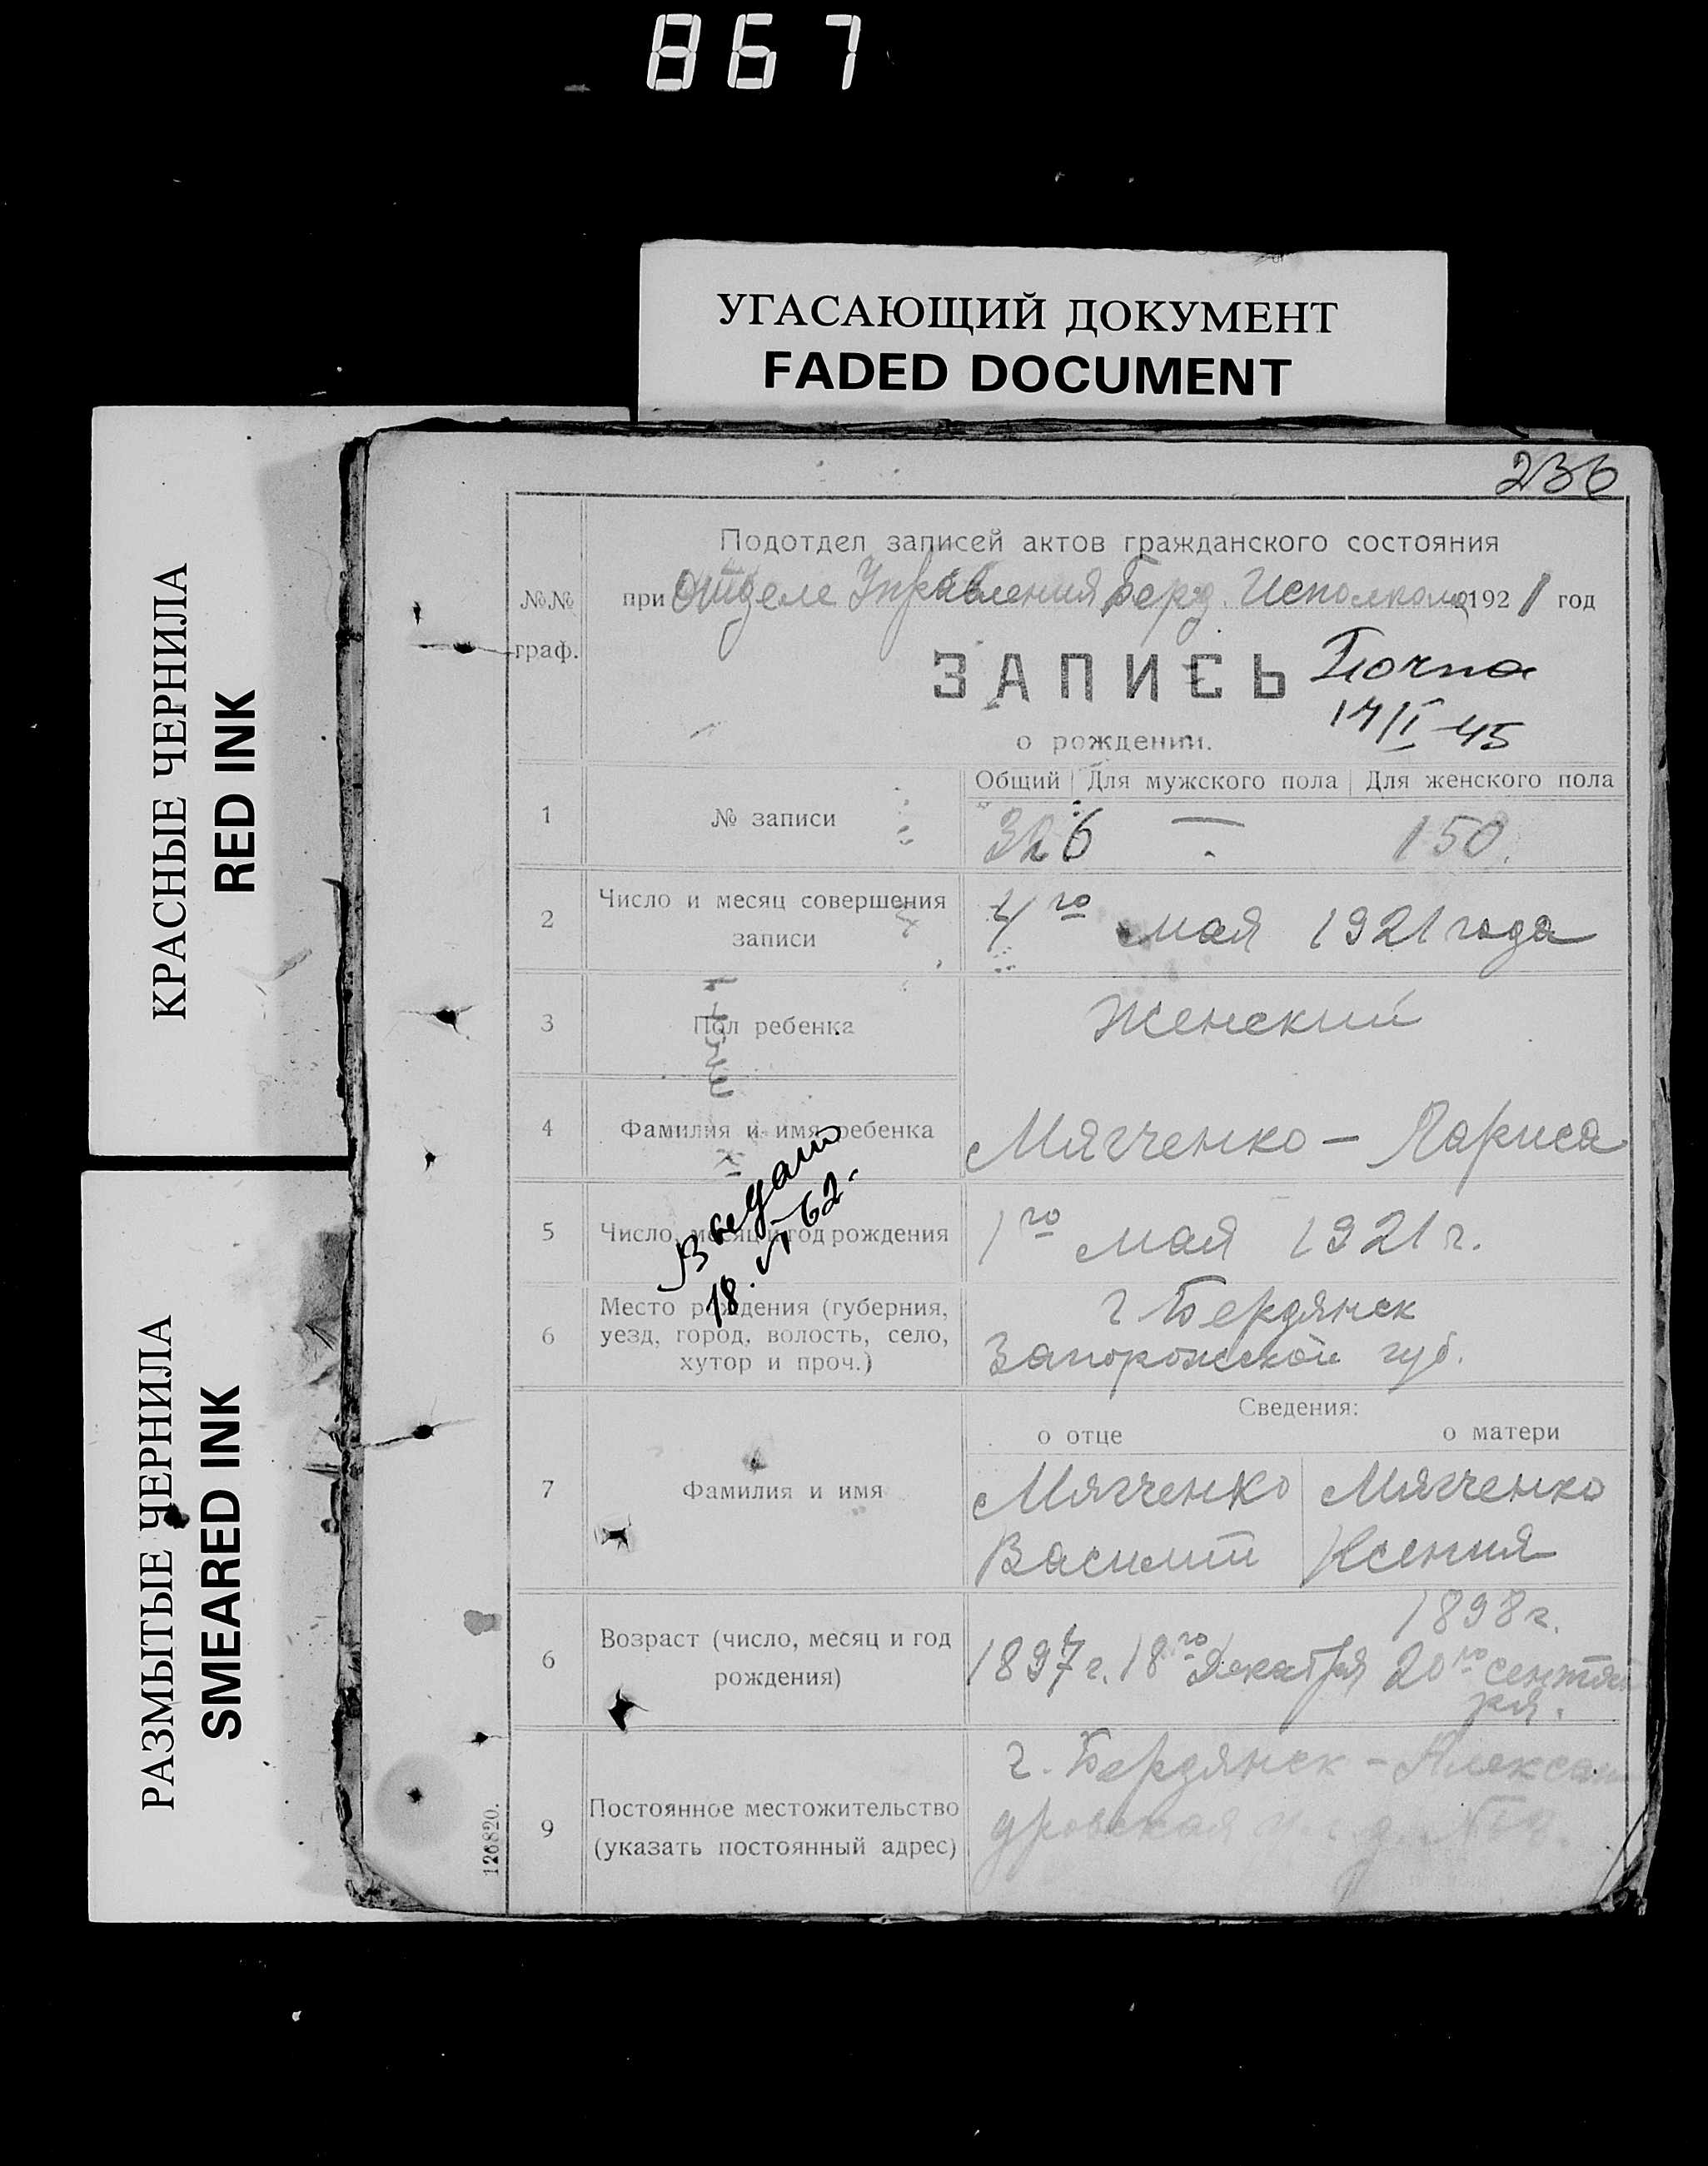 867
УГАСАЮЩИЙ ДОКУМЕНТ
FADED DOCUMENT
КРАСНЫЕ ЧЕРНИЛА
RED INK
РАЗМЫТЫЕ ЧЕРНИЛА
SMEARED INK
236
Подотдел записей актов гражданского состояния
№№ граф.
при Отделе Управления Берд. Исполкома 1921 год
ЗАПИСЬ
о рождении.
Почта
17/I-45
Общий Для мужского пола Для женского пола
1 № записи 326 — 150.
2 Число и месяц совершения записи 4го мая 1921 года
3 Пол ребенка Женский
4 Фамилия и имя ребенка Мягченко – Лариса
5 Число, месяц и год рождения 1го мая 1921 г.
18. 62.
6 Место рождения (губерния,
уезд, город, волость, село,
хутор и проч.)
г Бердянск
Запорожской губ.
Сведения:
о отце о матери
7 Фамилия и имя
Мягченко Мягченко
Василий Ксения
6 Возраст (число, месяц и год
рождения)
1898 г.
1897 г. 18го Декабря 20го сентяб
ря.
9 Постоянное местожительство
(указать постоянный адрес)
г. Бердянск – Алексан
дровская
126820.